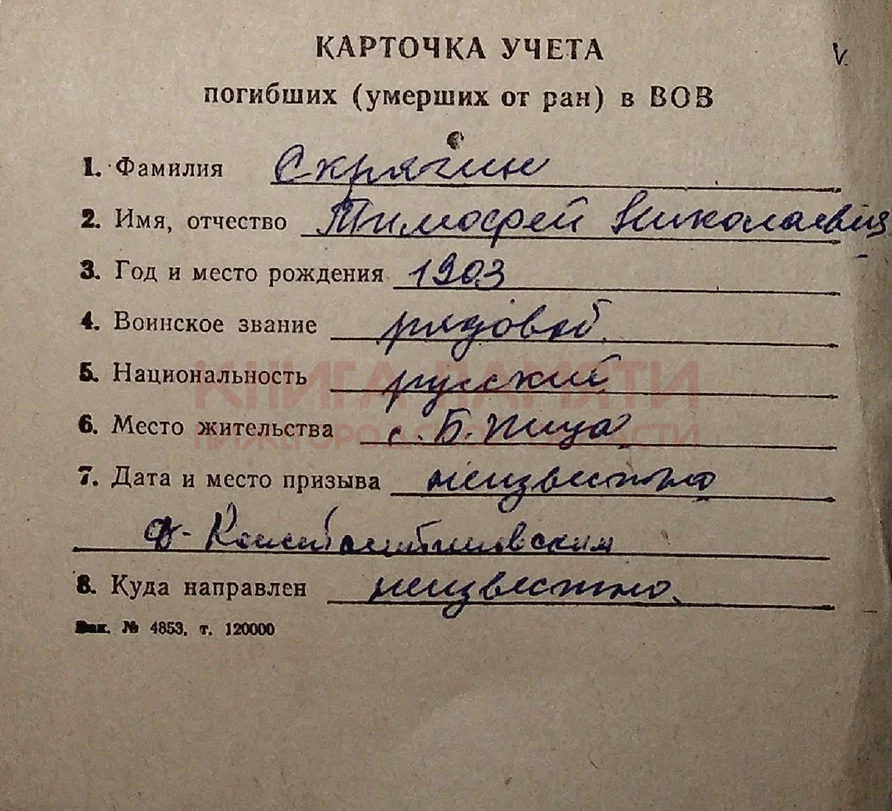 КАРТОЧКА УЧЕТА
v.
погибших (умерших от ран) в ВОВ
1. Фамилия Скрягин
2. Имя, отчество Тимофей Николаевич
3. Год и место рождения 1903
4. Воинское звание рядовой.
5. Национальность русский
КНИГА ПАМЯТИ
6. Место жительства с. Б. Пица
НИЖЕГОРОДСКОЙ ОБЛАСТИ
7. Дата и место призыва неизвестно
Д-Константиновским
8. Куда направлен неизвестно.
Зак. № 4853, т. 120000